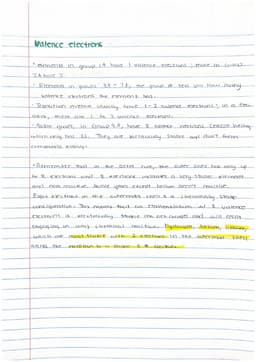 Valence electrons
• Elements in group 1A have 1 valence electrons; those in group
2A have 2.
• Elements in groups 3A - 7A, the group # tell you how many
valence electrons the element has.
• Transition metals usually have 1-2 valence electrons; in a few
cases, there are
• Noble gases, in Group 8A, have 8 valence electrons (
which only has 2). They are particularly stable and don't form
compounds easily.
• Remember that in the octet rule, the outer shell has only up
to 8 electrons and 8 electrons indicates a very stable element
and non-reactive. Noble gases except helium aren't reactive.
Eight electrons in the outermost shell is a chemically stable
configuration. This means that an element/atom w/ 8 valence
electrons is exceptionally stable
in any chemical reaction. Hydrogen, helium,
which are most stable with 2 electrons in the outermost shell